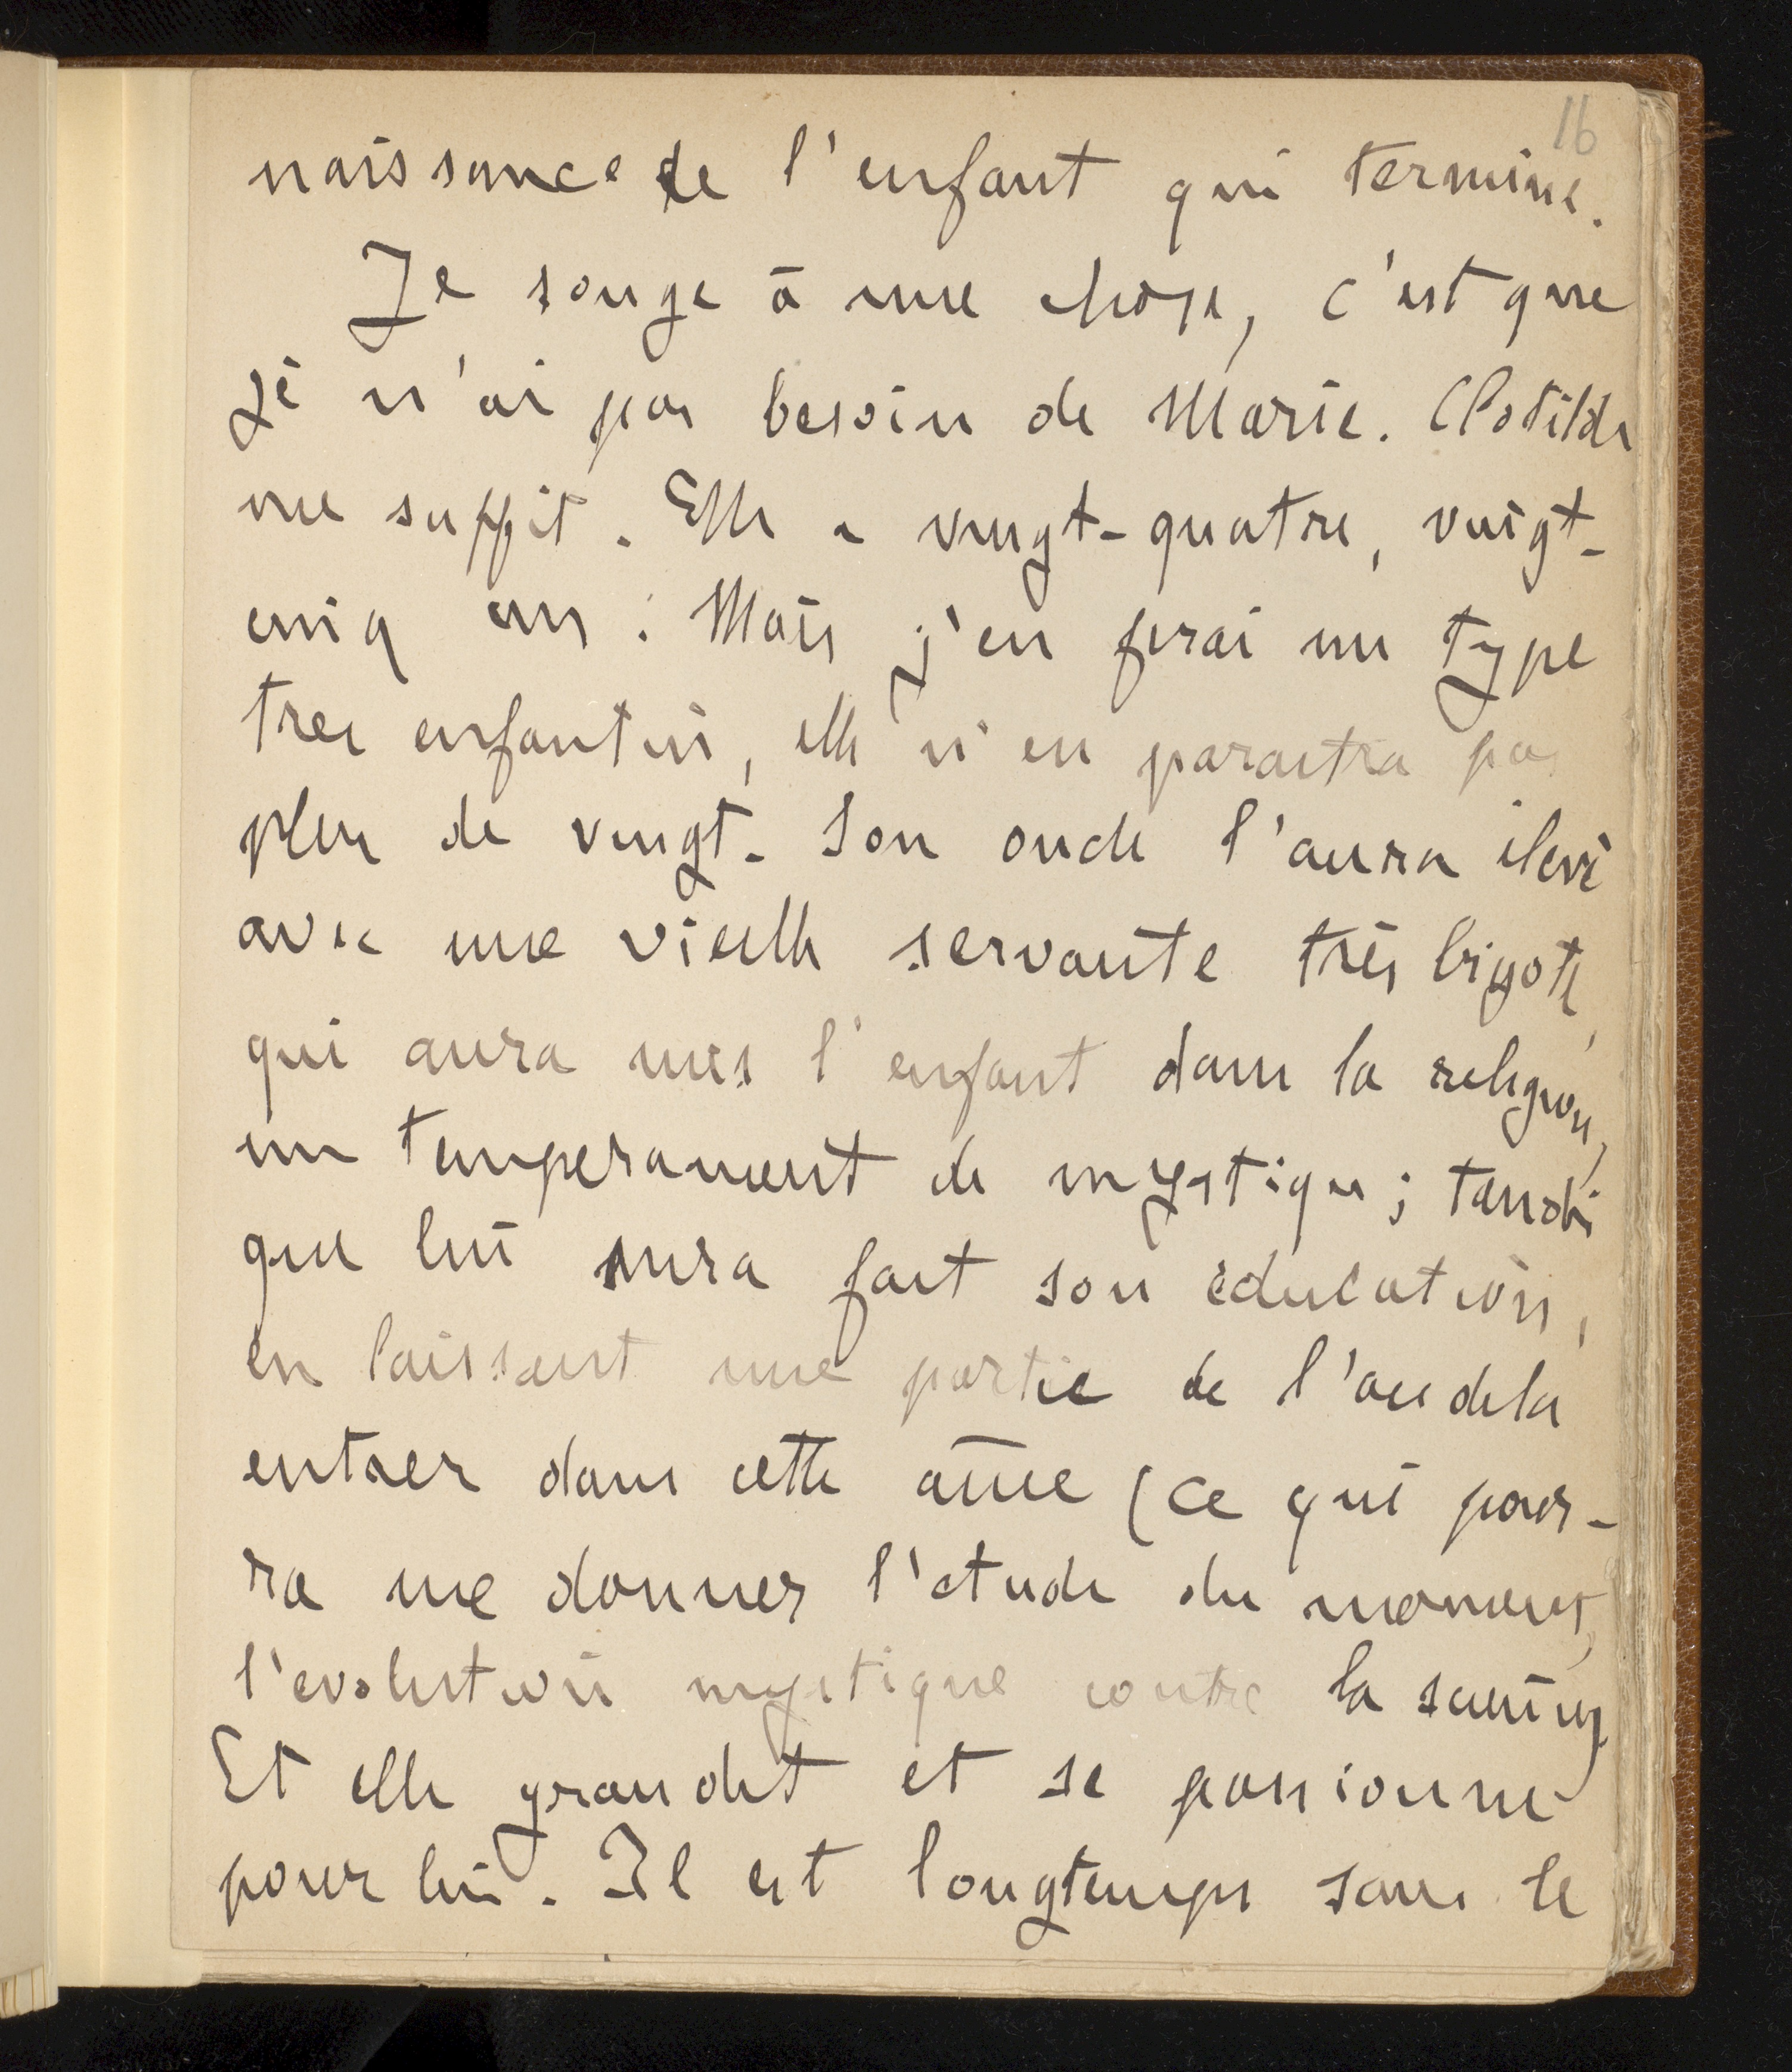 16
naissance de l'enfant qui termine.
Je songe à une chose, c'est que
je n'ai pas besoin de Marie. Clotilde
me suffit. Elle a vingt-quatre, vingt-
cinq ans. Mais j'en ferai un type
tres enfantin, elle n'en paraitra pas
plus de vingt. Son oncle l'aura élevé
avec une vieille servante très bigote,
qui aura mis l'enfant dans la religion,
un temperament de mystique ; tandis
que lui aura fait son éducation,
en laissant une partie de l'au dela
entrer dans cette âme (ce qui pour-
ra me donner l'étude du moment,
l'evolution mystique contre la science)
Et elle grandit et se passionne
pour lui. Il est longtemps sans le